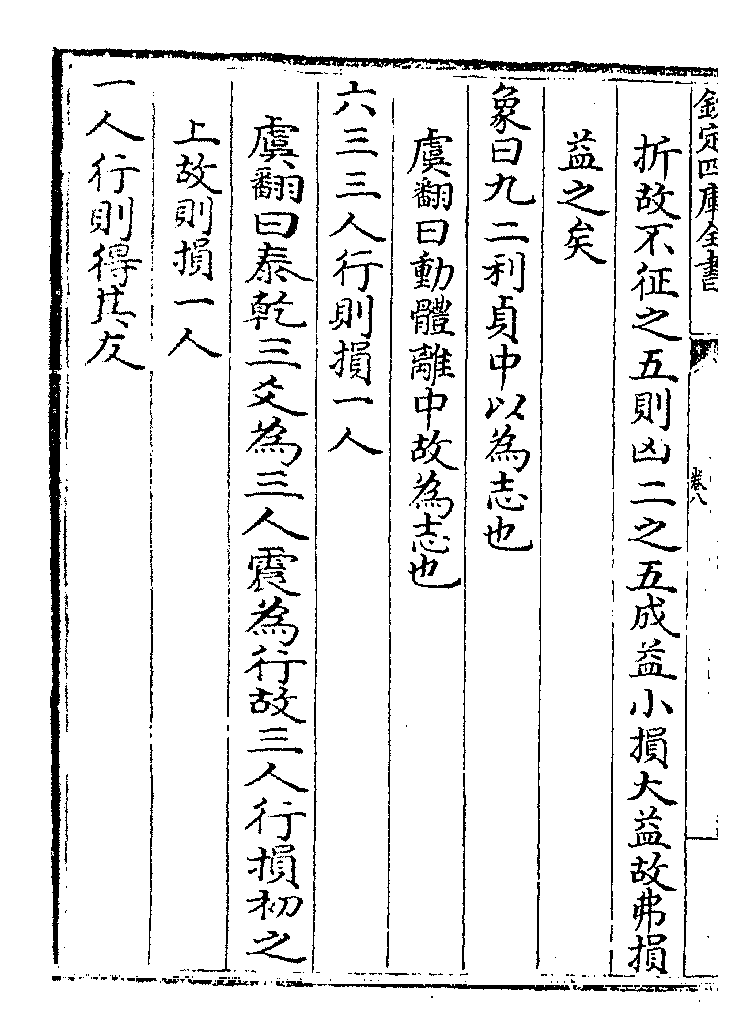 欽定四庫全書
卷八
折故不征之五則凶二之五成益小損大益故弗損
益之矣
象曰九二利貞中以為志也
虞翻曰動體離中故為志也
六三三人行則損一人
虞翻曰泰乾三爻為三人震為行故三人行損初之
上故則損一人
一人行則得其友